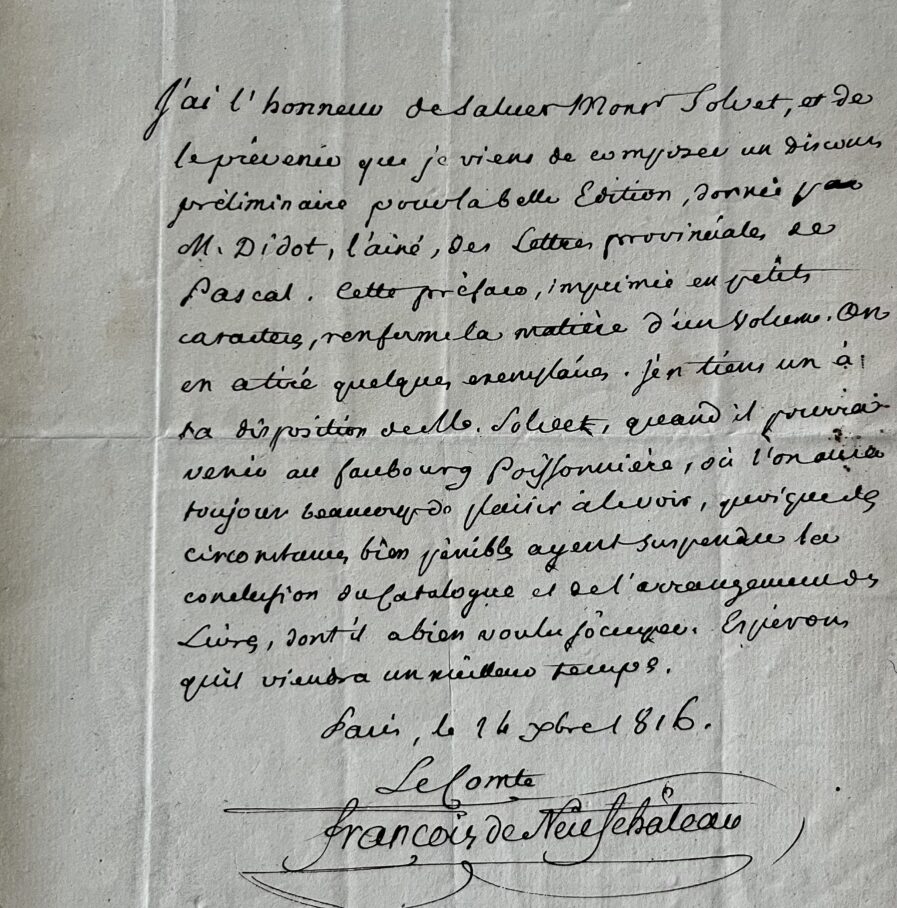 J'ai l'honneur de saluer Monsr Solvet, et de
le prévenir que je viens de composer un discours
préliminaire pour la belle Edition, donnée par
M. Didot, l'ainé, des Lettres provinciales de
Pascal. Cette préface, imprimée en petits
caracteres, renferme la matière d'un Volume. On
en a tiré quelques exemplaires. J'en tiens un à
la disposition de M. Solvet, quand il pourra
venir au faubourg Poissonnière, où l'on aura
toujour beaucoup de plaisir à le voir, quoique des
circonstances bien pénibles ayent suspendu la
conclusion du Catalogue et de l'arrangement des
Livres, dont il a bien voulu s'occuper. Espérons
qu'il viendra un meilleur temps.
Paris, le 14 xbre 1816.
Le Comte
françois de Neufchâteau